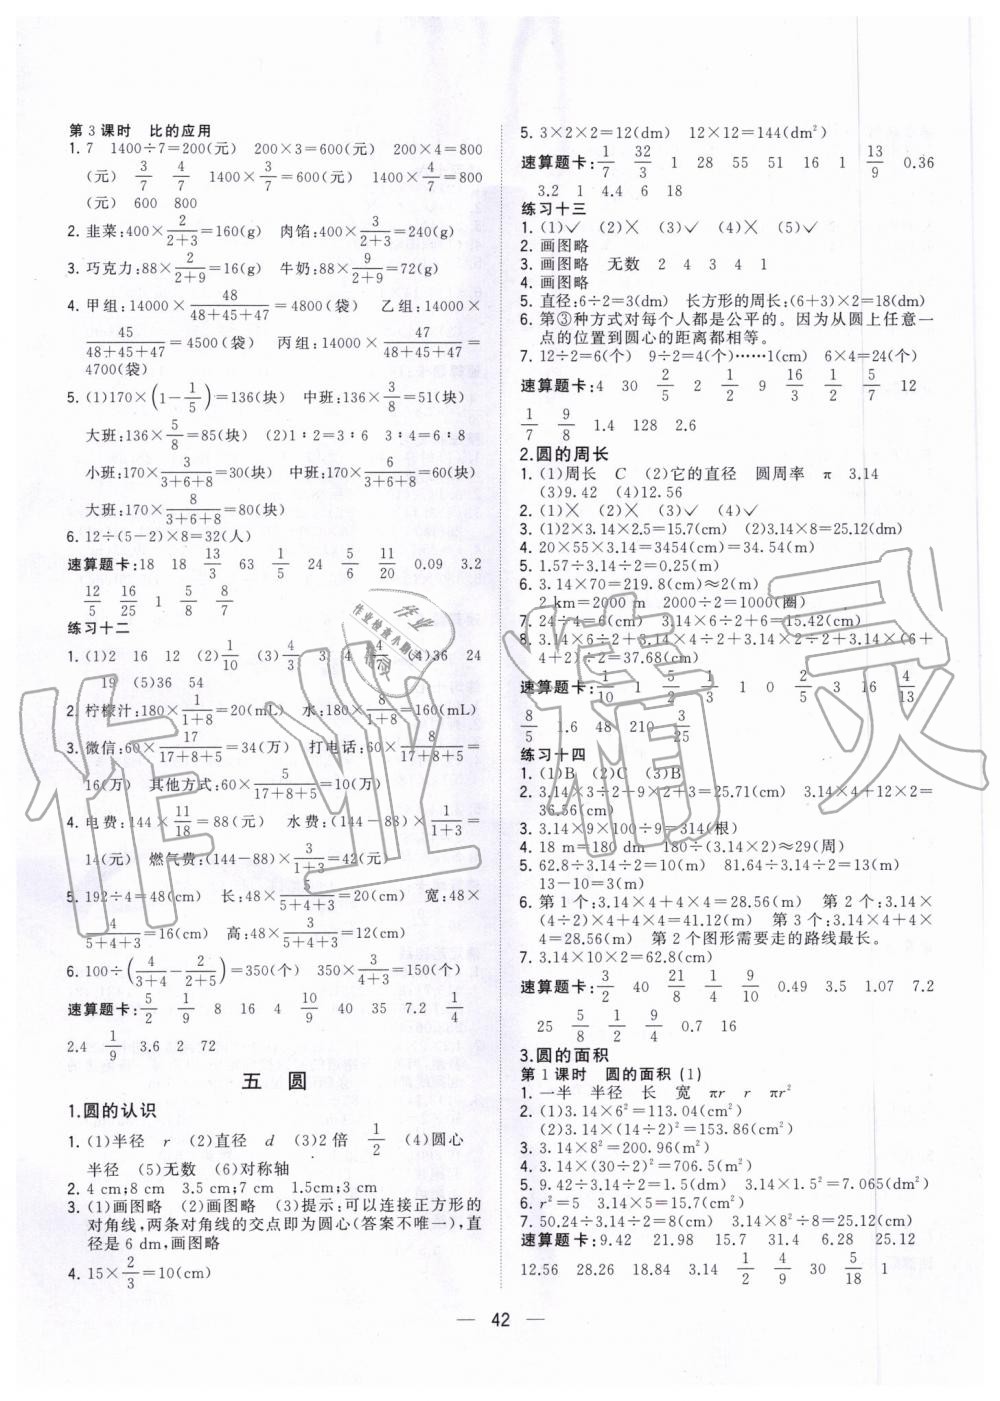 第3课时　比的应用
1. 7　1400÷7=200(元)　200×3=600(元)　200×4=800
(元)　3/7　4/7　1400×3/7=600(元)　1400×4/7=800
(元)　600　800
2. 韭菜:400×2/(2+3)=160(g)　肉馅:400×3/(2+3)=240(g)
3. 巧克力:88×2/(2+9)=16(g)　牛奶:88×9/(2+9)=72(g)
4. 甲组:14000×48/(48+45+47)=4800(袋)　乙组:14000×
45/(48+45+47)=4500(袋)　丙组:14000×47/(48+45+47)=
4700(袋)
5. (1)170×(1-1/5)=136(块)　中班:136×3/8=51(块)
大班:136×5/8=85(块)　(2)1∶2=3∶6　3∶4=6∶8
小班:170×3/(3+6+8)=30(块)　中班:170×6/(3+6+8)=60(块)
大班:170×8/(3+6+8)=80(块)
6. 12÷(5-2)×8=32(人)
速算题卡:18　18　13/3　63　1/5　24　5/6　11/20　0.09　3.2
12/5　16/25　1　5/8　8/7
练习十二
1. (1)2　16　12　(2)1/10　(3)4/3　3　4　(4)36　24
19　(5)36　54
2. 柠檬汁:180×1/(1+8)=20(mL)　水:180×8/(1+8)=160(mL)
3. 微信:60×17/(17+8+5)=34(万)　打电话:60×8/(17+8+5)=
16(万)　其他方式:60×5/(17+8+5)=10(万)
4. 电费:144×11/18=88(元)　水费:(144-88)×1/(1+3)=
14(元)　燃气费:(144-88)×3/(1+3)=42(元)
5. 192÷4=48(cm)　长:48×5/(5+4+3)=20(cm)　宽:48×
4/(5+4+3)=16(cm)　高:48×3/(5+4+3)=12(cm)
6. 100÷(4/(3+4)-2/(2+5))=350(个)　350×3/(3+4)=150(个)
速算题卡:5/2　1/9　8　16　4　10/9　40　35　7.2　1/4
2.4　1/9　3.6　2　72
五　圆
1.圆的认识
1. (1)半径　r　(2)直径　d　(3)2倍　1/2　(4)圆心
半径　(5)无数　(6)对称轴
2. 4 cm;8 cm　3.5 cm;7 cm　1.5cm;3 cm
3. (1)画图略　(2)画图略　(3)提示:可以连接正方形的
对角线,两条对角线的交点即为圆心(答案不唯一),直
径是6 dm,画图略
4. 15×2/3=10(cm)
5. 3×2×2=12(dm)　12×12=144(dm²)
速算题卡:1/7　32/3　1　28　55　51　16　1　13/9　0.36
3.2　1　4.4　6　18
练习十三
1. (1)✓　(2)×　(3)×　(4)×　(5)✓
2. 画图略
3. 画图略　无数　2　4　3　4　1
4. 画图略
5. 直径:6÷2=3(dm)　长方形的周长:(6+3)×2=18(dm)
6. 第③种方式对每个人都是公平的。因为从圆上任意一
点的位置到圆心的距离都相等。
7. 12÷2=6(个)　9÷2=4(个)……1(cm)　6×4=24(个)
速算题卡:4　30　2/5　2　1/2　9　16/3　1/2　5/7　12
1/7　9/8　1.4　128　2.6
2.圆的周长
1. (1)周长　C　(2)它的直径　圆周率　π　3.14
(3)9.42　(4)12.56
2. (1)×　(2)×　(3)✓　(4)✓
3. (1)2×3.14×2.5=15.7(cm)　(2)3.14×8=25.12(dm)
4. 20×55×3.14=3454(cm)=34.54(m)
5. 1.57÷3.14÷2=0.25(m)
6. 3.14×70=219.8(cm)≈2(m)
2 km=2000 m　2000÷2=1000(圈)
7. 24÷4=6(cm)　3.14×6÷2+6=15.42(cm)
8. 3.14×6÷2+3.14×4÷2+3.14×2÷2+3.14×(6+
4+2)÷2=37.68(cm)
速算题卡:1/10　1　5/2　1/3　1　0　2/5　3　16　4/13
8/5　1.6　48　210　3/25
练习十四
1. (1)B　(2)C　(3)B
2. 3.14×3÷2+9×2+3=25.71(cm)　3.14×4+12×2=
36.56(cm)
3. 3.14×9×100÷9=314(根)
4. 18 m=180 dm　180÷(3.14×2)≈29(周)
5. 62.8÷3.14÷2=10(m)　81.64÷3.14÷2=13(m)
13-10=3(m)
6. 第1个:3.14×4+4×4=28.56(m)　第2个:3.14×
(4÷2)×4+4×4=41.12(m)　第3个:3.14×4+4×
4=28.56(m)　第2个图形需要走的路线最长。
7. 3.14×10×2=62.8(cm)
速算题卡:3/2　40　21/8　1/4　9/10　0.49　3.5　1.07　7.2
25　5/8　1/2　9/4　0.7　16
3.圆的面积
第1课时　圆的面积(1)
1. 一半　半径　长　宽　πr　r　πr²
2. (1)3.14×6²=113.04(cm²)
(2)3.14×(14÷2)²=153.86(cm²)
3. 3.14×8²=200.96(m²)
4. 3.14×(30÷2)²=706.5(m²)
5. 9.42÷3.14÷2=1.5(dm)　3.14×1.5²=7.065(dm²)
6. r²=5　3.14×5=15.7(cm²)
7. 50.24÷3.14÷2=8(cm)　3.14×8=25.12(cm)
速算题卡:9.42　21.98　15.7　31.4　6.28　25.12
12.56　28.26　18.84　3.14　1/2　4/9　30　5/18　1
42